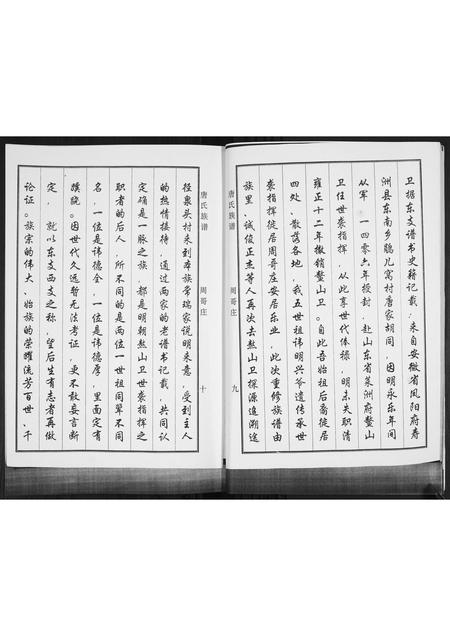 卫据东支谱书史籍记载：来自安徽省凤阳府寿
洲县东南乡鹅儿窝村唐家胡同，因明永乐年间
从军，一四零六年授封，赴山东省莱洲府鳌山
卫任世袭指挥，从此享世代俸禄，明末失职清
雍正十二年撤销鳌山卫。自此吾始祖后裔徙居
四处、散落各地，我五世祖讳明兴爷遗传承世
袭指挥徙居周哥庄安居乐业，此次重修族谱由
族里、诚俊正杰等人再次去熬山卫探源追溯途
唐氏族谱
周哥庄
九
唐氏族谱
周哥庄
十
径泉头村来到本族常瑞家说明来意，受到主人
的热情接待，通过两家的老谱书记载，共同认
定确是一脉之族，都是明朝熬山卫世袭指挥之
职者的后人，所不同的是两位一世祖同辈不同
名，一位是讳德全，一位是讳德厚，里面定有
蹊跷。因世代久远暂无法考证，更不敢妄言断
定，就以东支西支之称，望后生有志者再做
论证。族宗的伟大、始族的荣耀流芳百世、千